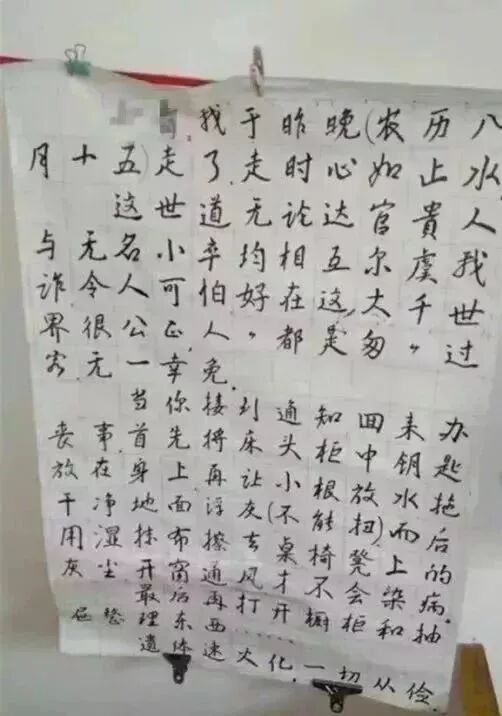 我于昨晚(农历八
月十五)走了.走时心如止水,
这世道无论达官贵人
与无名小卒均相互尔虞我
诈令人可怕.好在这大千世
界很公正,人"都是匆匆"过
客无一幸免.
当你接到通知回来办
丧事首先将床头柜中钥匙
放在身上再让小根放水拖
干净地面浮灰(不能扭)而后
用湿抹布擦去桌椅凳上的
灰尘开窗通风才不会染病.
最后再打开橱柜和抽
屉整理东西……
遗体速火化,一切从俭.